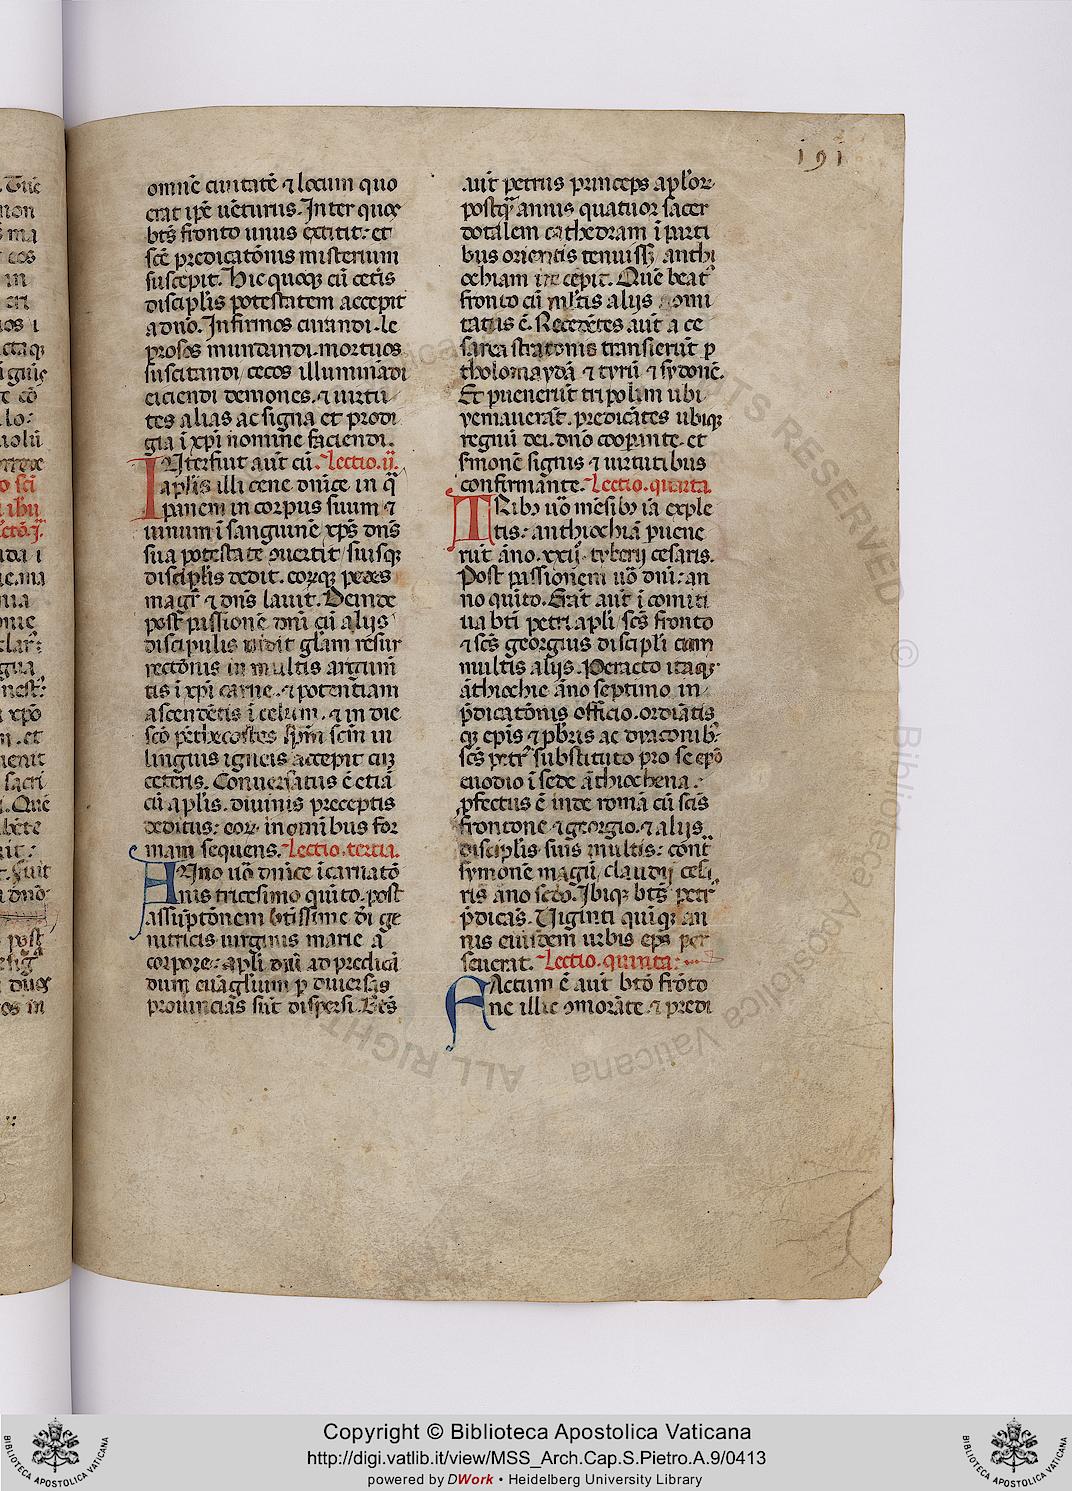 191
omnē ciuitatē ⁊ locum quo
erat ip̄e uēturus. Inter quos
bt̄s fronto unus extitit: et
sc̄e predicatōnis misterium
suscepit. Hic quoqꝫ cū cet̄is
discipl̄is potestatem accepit
a dn̄o. Infirmos curandi. le
prosos mundandi. mortuos
suscitandi cecos illuminādi
eiciendi demones. ⁊ uirtu
tes alias ac signa et prodi
gia ī xp̄i nomine faciendi.
INterfuit aut̄ cū. Lectio. ij.
apl̄is illi cene dn̄ice in q̄
panem in corpus suum ⁊
uinum ī sanguinē xp̄s dn̄s
sua potestate ꝯuertit suisqꝫ
discipl̄is dedit. eorqꝫ pedes
magr̄ ⁊ dn̄s lauit. Deinde
post passionē dn̄i cū alijs
discipulis uidit gl̄am resur
rectōnis in multis argum̄
tis ī xp̄i carne. ⁊ potentiam
ascendētis ī celum. ⁊ in die
sc̄o pēthecostes sp̄m sc̄m in
linguis igneis accepit cū
ceteris. Conuersatus ē etiā
cū apl̄is. diuinis preceptis
deditus: eoꝝ in omībus for
mam sequens. Lectio. tertia.
ANno uō dn̄ice īcarnatō
nis tricesimo quīto. post
assūptōnem bt̄issime dī ge
nitricis uirginis marie a
corpore: apl̄i dn̄i ad predicā
dum euāglium ꝑ diuersas
prouincias sūt dispersi. Bt̄s
aut̄ petrus princeps apl̄oꝝ
postq̄ annis quatuor sacer
dotalem cathedram ī parti
bus orientis tenuiss̄ anthi
ochiam īde cēpit. Quē beat᷒
fronto cū ml̄tis alijs comi
tatus ē. Recedētes aut̄ a ce
sarea stratonis transierūt ꝑ
tholomaydā ⁊ tyrū ⁊ sydonē.
Et puenerūt tripolim ubi
yemauerāt. predicātes ubiqꝫ
regnū dei. dn̄o cooꝑante. et
smonē signis ⁊ uirtutibus
confirmāte. Lectio. quarta.
TRibꝫ uō mēsibꝫ iā exple
tis: anthiochiā puene
rūt āno. xxij. tyberij cesaris.
Post passionem uō dn̄i: an
no quīto. Erāt aut̄ ī comiti
ua bt̄i petri apl̄i sc̄s fronto
⁊ sc̄s georgius discipli cum
multis alijs. Peracto itaqꝫ
āthiochie āno septimo in
p̄dicatōnis officio. ordīatis
qꝫ ep̄is ⁊ pb̄ris ac dyaconibꝫ
sc̄s petr᷒ substituto pro se ep̄o
euodio ī sede āthiochena:
ꝓfectus ē inde romā cū sc̄is
frontone ⁊ georgio. ⁊ alijs
discipl̄is suis multis: cont̄
symonē magū, claudij cesa
ris āno sc̄do. Ibiqꝫ bt̄s petr᷒
p̄dicās. Uiginti quīqꝫ an
nis eiusdem urbis ep̄s per
seuerat. Lectio. quinta:
FActum ē aut̄ bt̄o frōto
ne illic ꝯmorāte. ⁊ predi
Copyright © Biblioteca Apostolica Vaticana
http://digi.vatlib.it/view/MSS_Arch.Cap.S.Pietro.A.9/0413
powered by DWork • Heidelberg University Library